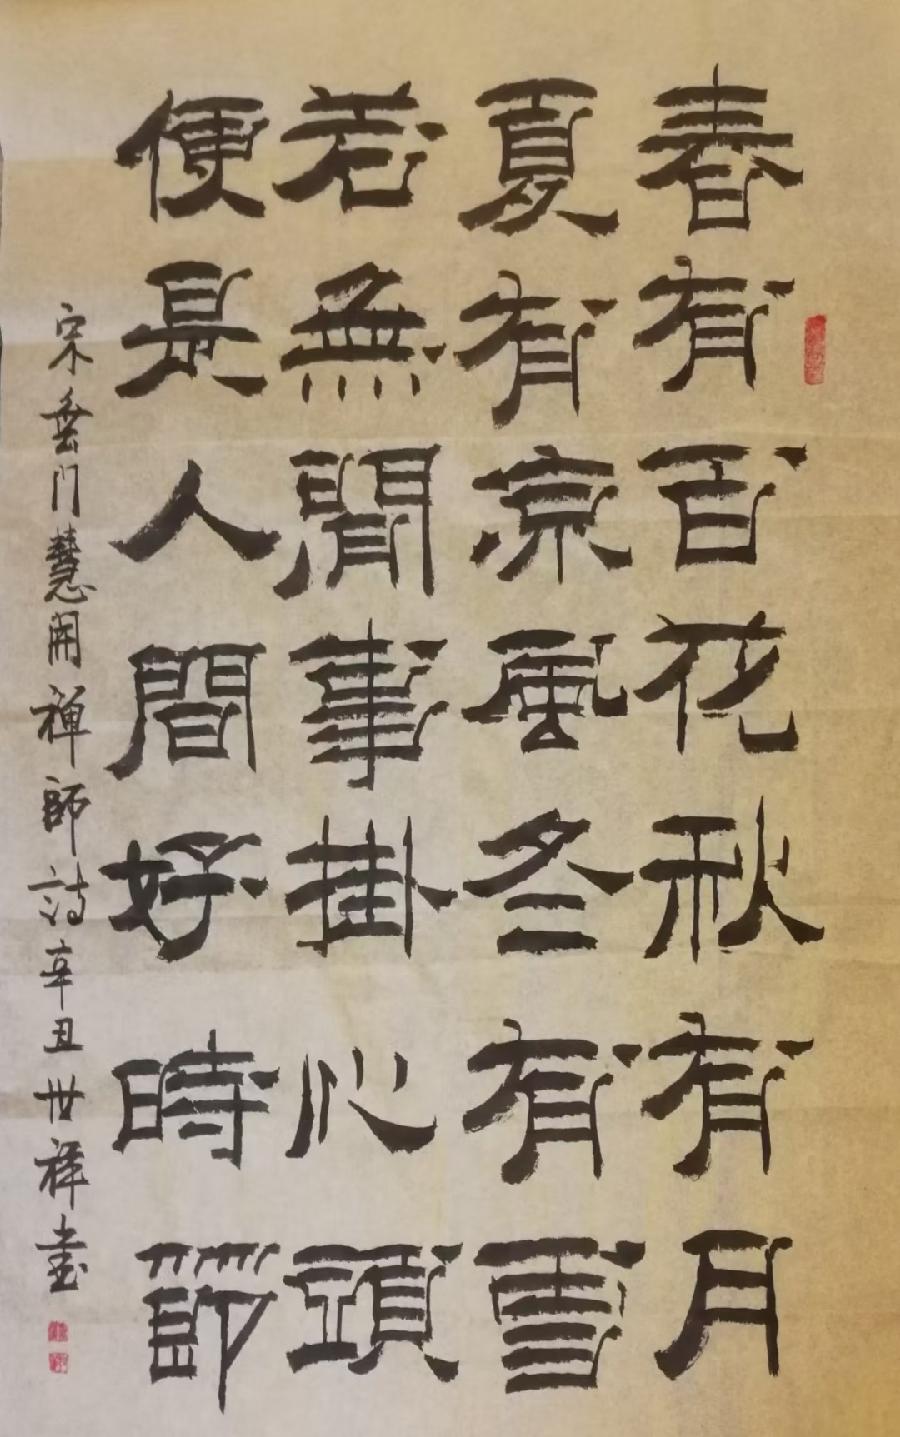 春有百花秋有月
夏有凉風冬有雪
若無閒事掛心頭
便是人間好時節
宋雲门慧開禪師詩辛丑世祥書